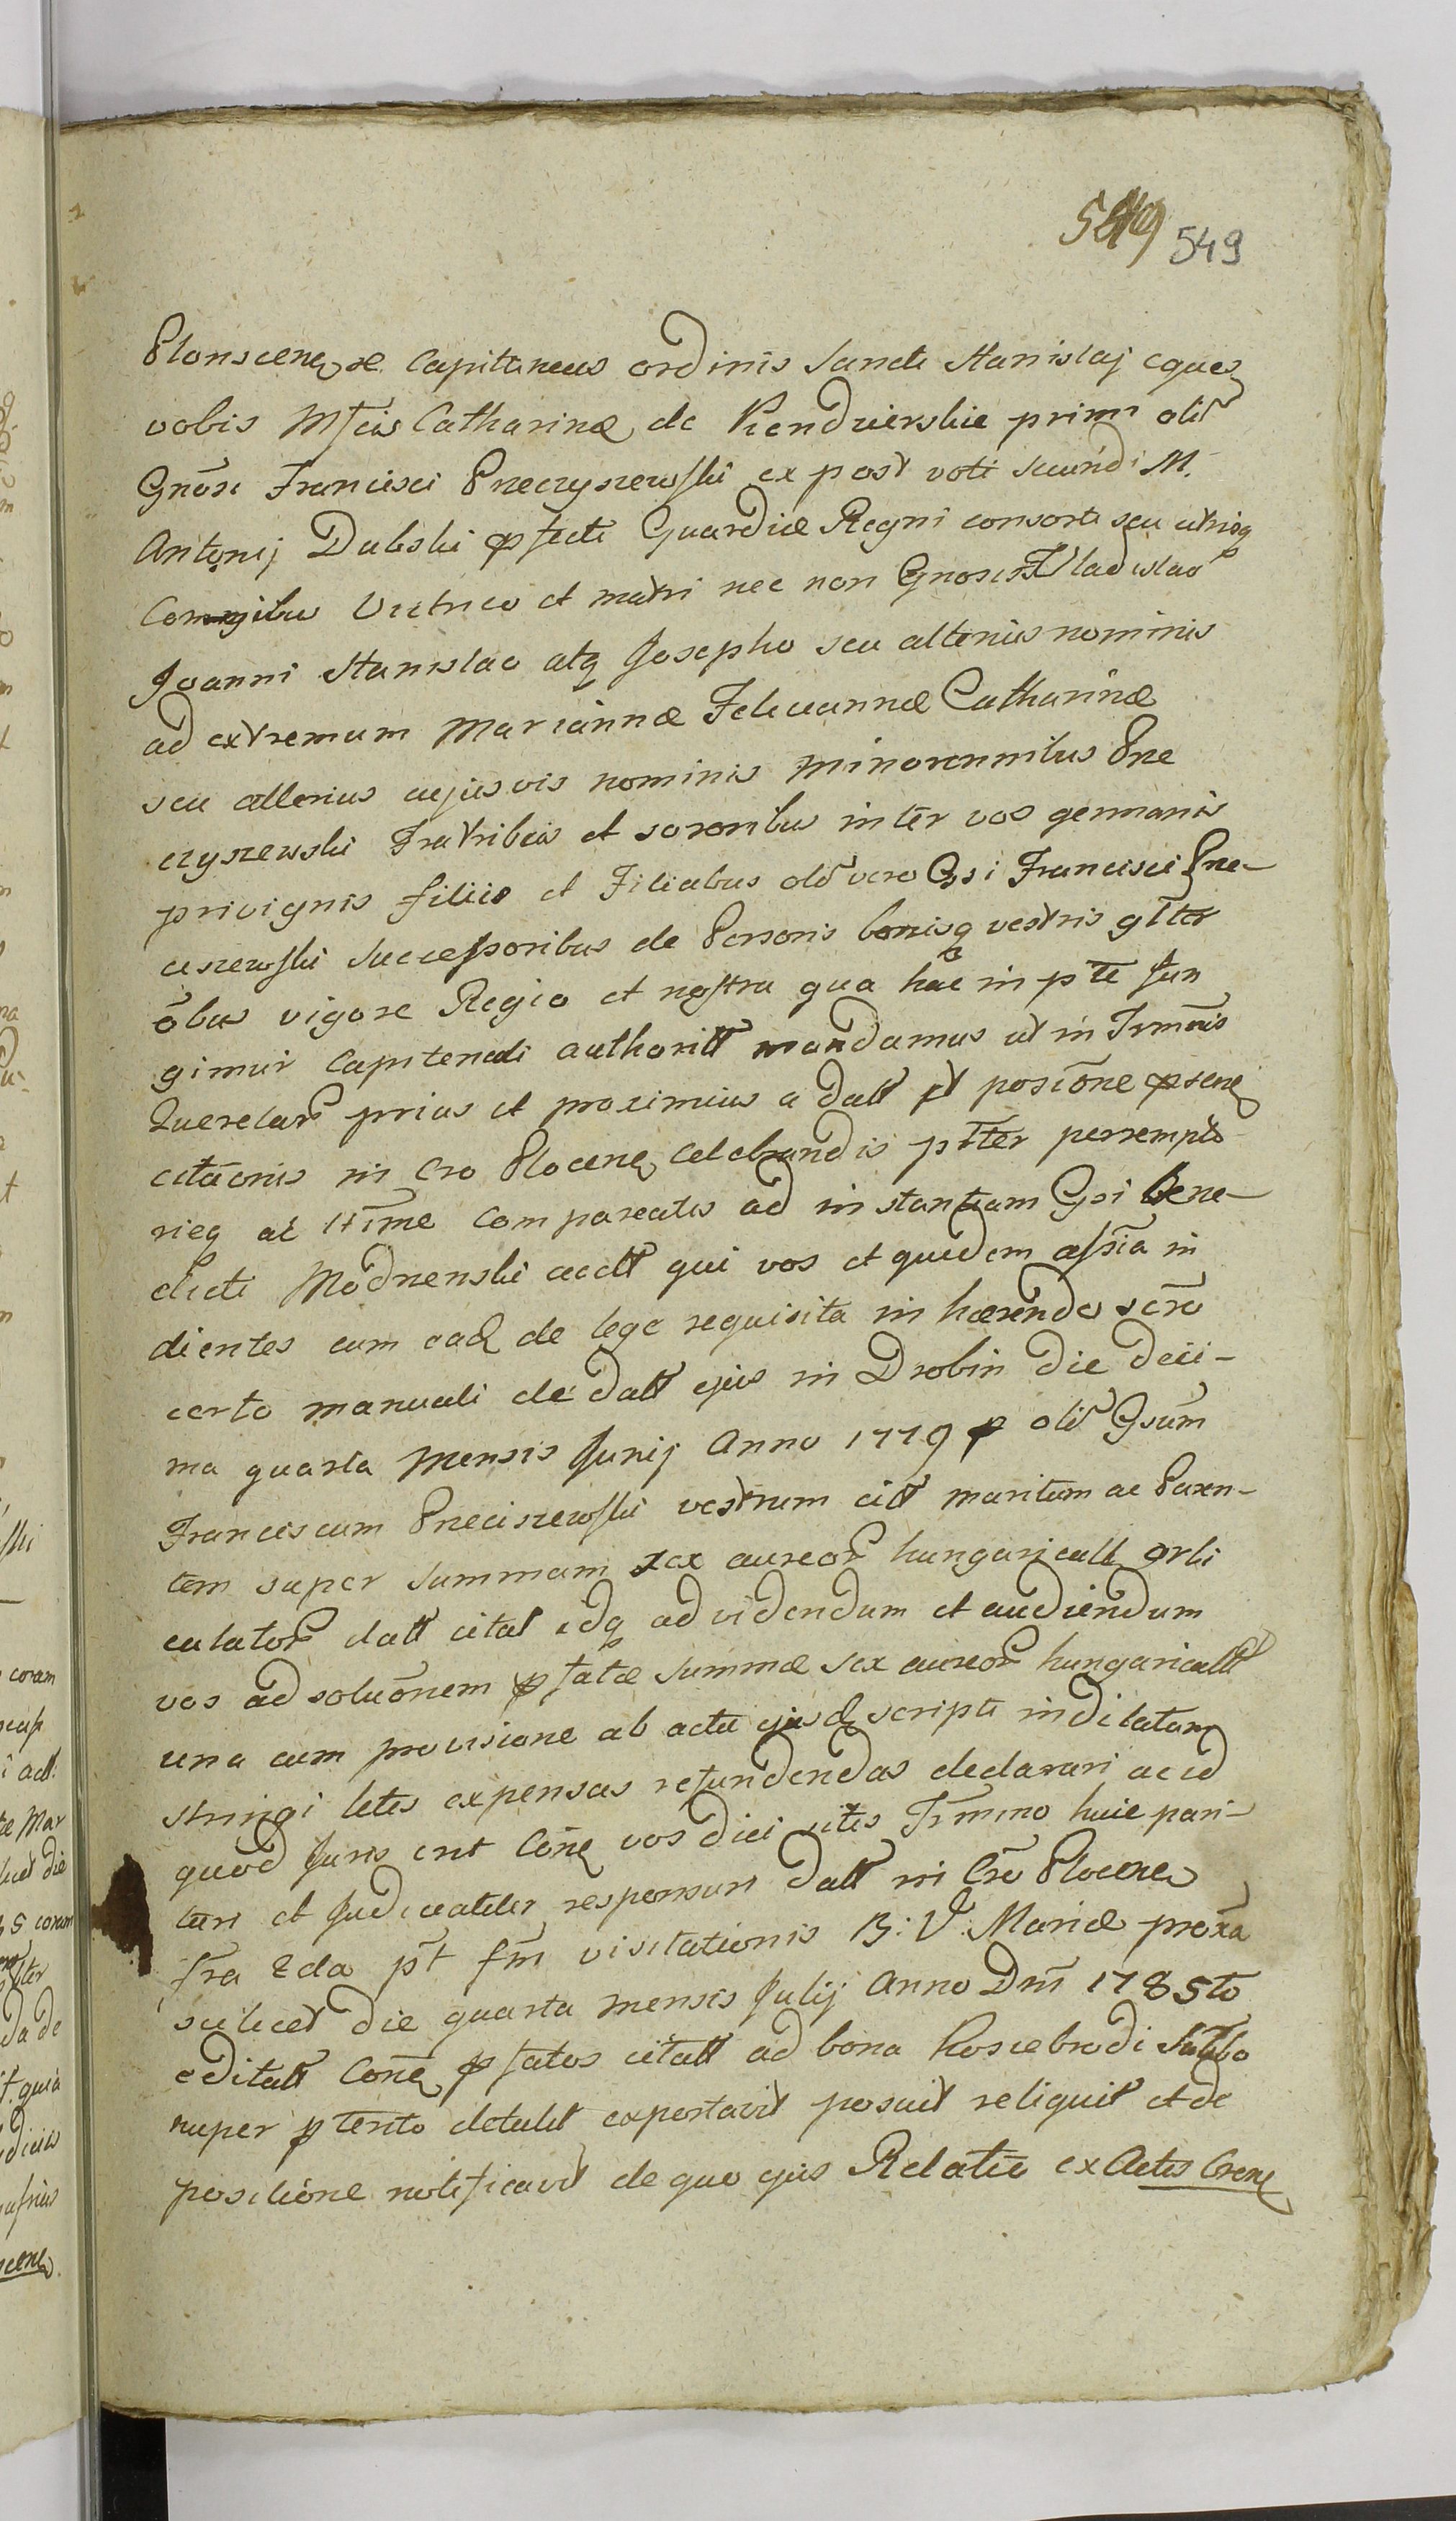 549 549
Plonscenȝ &c. Capitaneus ordinis Sancti Stanislaj eques
vobis Mfcis Catharinæ de Kendzierskie primi oli
Gnosi Francisci Przeczyszewski ex post voti secundi M.
Antonij Dulski pfecti Guardiæ Regni consorti seu utrisq
Conjugibus Vitrico et matri nec non Gnosis Vladislao
Joanni Stanislao atq Josepho seu alterius nominis
ad extremum Mariannæ Feliciannæ Catharinæ
seu alterius cujusvis nominis minorennibus Prze
czyszewski Fratribus et sororibus inter vos germanis
privignis filiis et Filiabus oli vero Gsi Francisci Prze-
ciszewski Successoribus de Personis bonisq vestris gltter
õbus vigore Regio et nostra qua hac in pte fun
gimur Capitaneali authoritt mandamus ut in Trmnis
Querelar prius et proximius a datt et posiõne psenȝ
citãonis in Cro Plocenȝ celebrandis psltter perrempto
rieq at ltime compareatis ad instantiam Gsi Bene-
dicti Modzenski actt qui vos et quidem assia in
dientes cum eadȝ de lege requisita in hærendo scro
certo manuali de datt ejus in Drobin die deci-
ma quarta Mensis Junij Anno 1779 p oli Gsum
Franciscum Przeciszewski vestrum citt maritum ac Paren-
tem super summam sex aureor hungaricall orbi
culator datt citat idq ad videndum et audiendum
vos ad soluõnem pfatæ summæ sex aureor hungaricall
una cum provisione ab actu ejusdȝ scripti indilatam
stringi litis expensas refundendas declarari ac id
quod Juris erit Conȝ vos dici sitis Trmino huic pari-
turi et Judicialiter responsuri datt in Cro Plocen
fra 2da pt fm visitationis B: V: Mariæ proxa
scilicet die quarta mensis Julij Anno Dni 1785to
editatt Conȝ pfatos citatt ad bona Kosciebrodi Subbo
nuper ptento detulit exportavit posuit reliquit et de
positione notificavit de quo ejus Relatio ex Actis Crenȝ